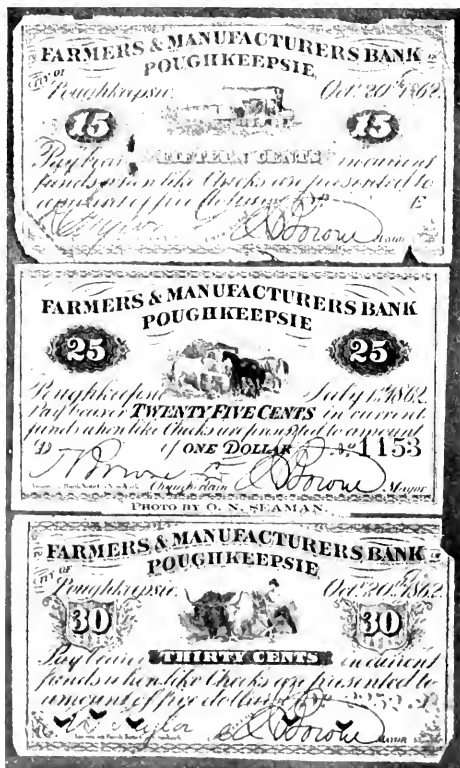 FARMERS & MANUFACTURERS BANK
CITY OF POUGHKEEPSIE
Poughkeepsie Oct. 20th 1862.
15 15
Pay bearer FIFTEEN CENTS in current
funds when like Checks are presented to
amount of five dollars No E
FARMERS & MANUFACTURERS BANK
POUGHKEEPSIE
25 25
Poughkeepsie July 1st 1862.
Pay bearer TWENTY FIVE CENTS in current
funds when like Checks are presented to amount
D of ONE DOLLAR. No 1153
Chamberlain Mayor
PHOTO BY O. N. SEAMAN.
FARMERS & MANUFACTURERS BANK
CITY OF POUGHKEEPSIE
Poughkeepsie Oct. 20th 1862.
30 30
Pay bearer THIRTY CENTS in current
funds when like Checks are presented to
amount of five dollars No
MAYOR